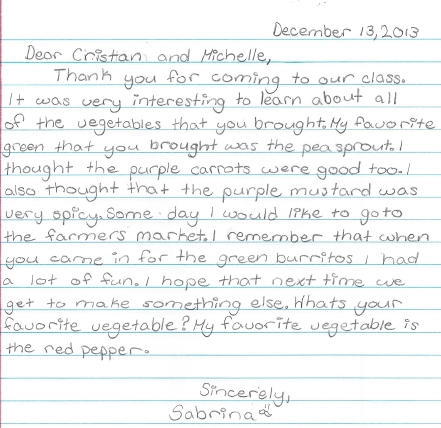 December 13, 2013
Dear Cristan and Michelle,
Thank you for coming to our class.
It was very interesting to learn about all
of the vegetables that you brought. My favorite
green that you brought was the pea sprout. I
thought the purple carrots were good too. I
also thought that the purple mustard was
very spicy. Some day I would like to go to
the farmers market. I remember that when
you came in for the green burritos I had
a lot of fun. I hope that next time we
get to make something else. Whats your
favorite vegetable? My favorite vegetable is
the red pepper.
Sincerely,
Sabrina